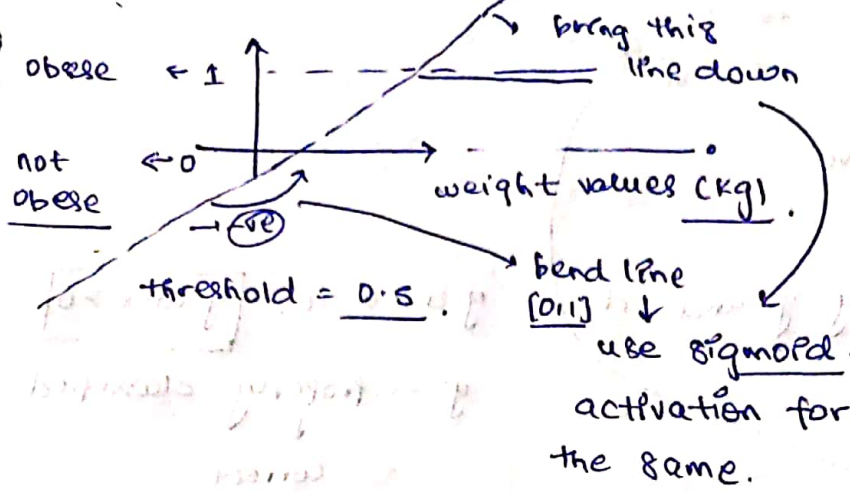 bring this
line down
obese ← 1
not ← 0
obese
weight values (kg).
→ -ve
threshold = 0.5.
bend line
[0,1] ↓
use sigmoid
activation for
the same.